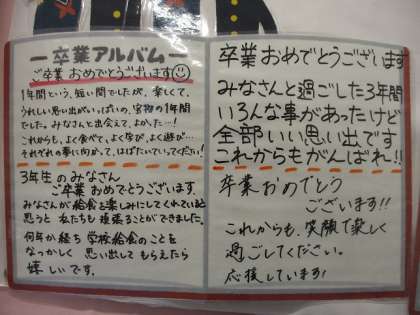 ー卒業アルバムー
ご卒業 おめでとうございます
1年間という、短い間でしたが、楽しくて、
うれしい思い出がいっぱいの、宝物の1年間
でした。みなさんと出会えて、よかった…!
これからも、よく食べて、よく学び、よく遊び…
それぞれの夢に向かって、はばたいていってください!
3年生のみなさん
ご卒業 おめでとうございます
みなさんが給食を楽しみにしてくれていると
思うと 私たちも 頑張ることができました。
何年か経ち 学校給食のことを
なつかしく 思い出して もらえたら
嬉しいです。
卒業おめでとうございます
みなさんと過ごした3年間
いろんな事があったけど
全部いい思い出です
これからもがんばれ!!
卒業おめでとう
ございます!!
これからも、笑顔で楽しく
過ごしてください。
応援しています!